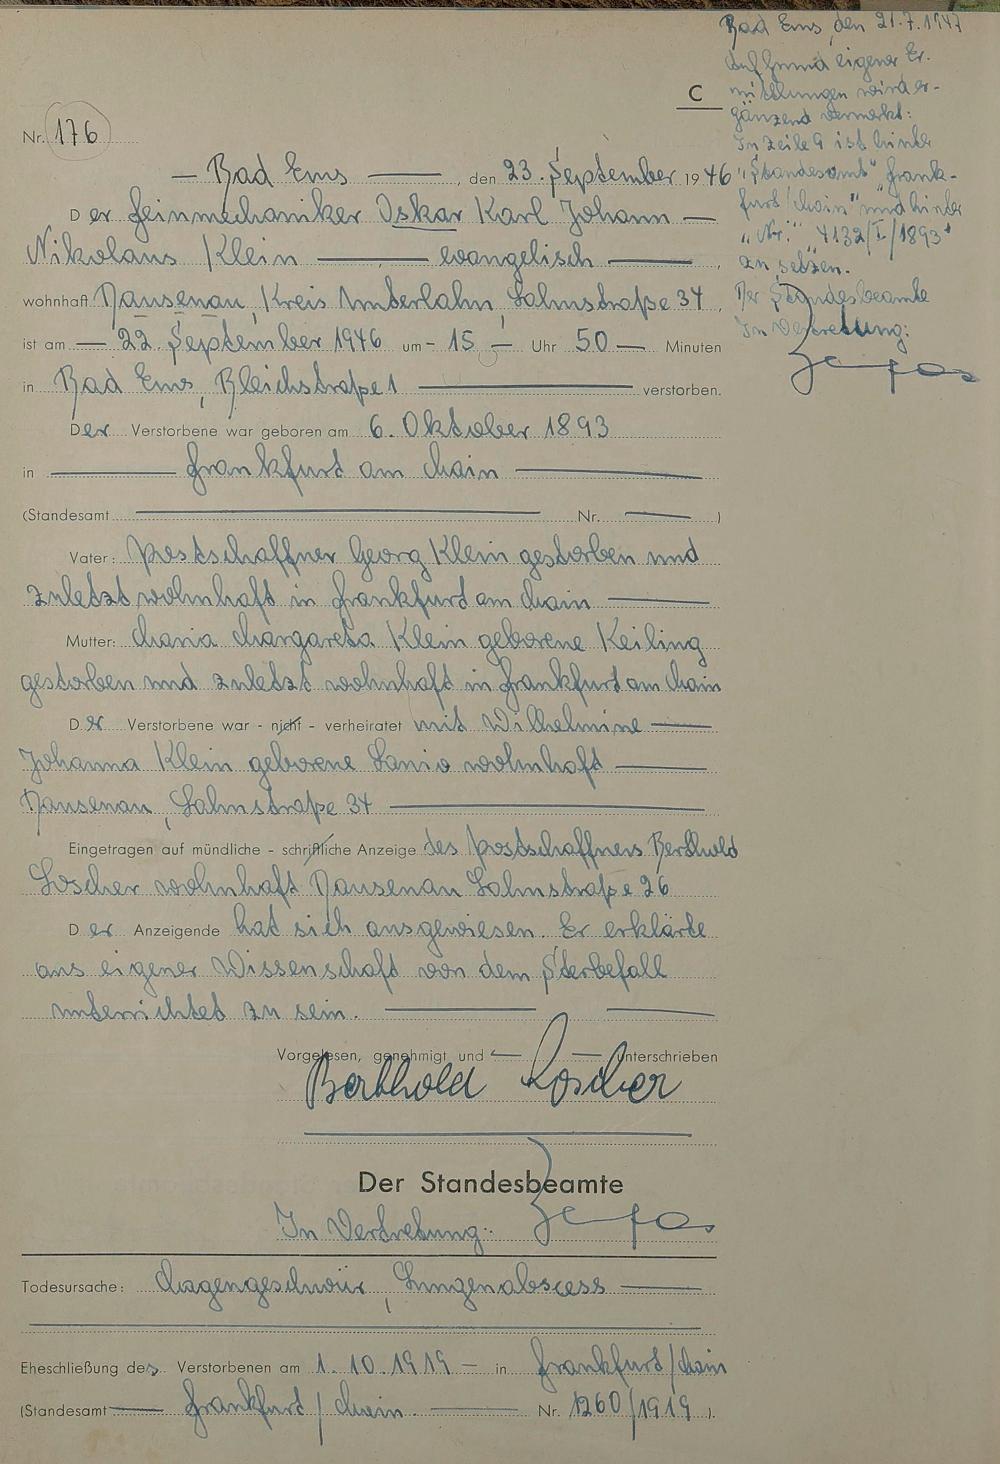 C
Nr. 176
— Bad Ems —, den 23. September 1946
Der Feinmechaniker Oskar Karl Johann —
Nikolaus Klein — evangelisch —,
wohnhaft Dausenau, Kreis Unterlahn, Lahnstraße 34,
ist am — 22. September 1946 um - 15 — Uhr 50 — Minuten
in Bad Ems, Bleichstraße 1 — verstorben.
Der Verstorbene war geboren am 6. Oktober 1893
in — Frankfurt am Main —
(Standesamt — Nr. — )
Vater: Postschaffner Georg Klein gestorben und
zuletzt wohnhaft in Frankfurt am Main —
Mutter: Maria Margareta Klein geborene Keiling
gestorben und zuletzt wohnhaft in Frankfurt am Main
Der Verstorbene war - nicht - verheiratet mit Wilhelmine —
Johanna Klein geborene Lanio wohnhaft —
Dausenau, Lahnstraße 34 —
Eingetragen auf mündliche - schriftliche Anzeige des Postschaffners Berthold
Loscher wohnhaft Dausenau Lahnstraße 26
Der Anzeigende hat sich ausgewiesen. Er erklärte
aus eigener Wissenschaft von dem Sterbefall
unterrichtet zu sein. — —
Vorgelesen, genehmigt und — — unterschrieben
Berthold Loscher
Der Standesbeamte
In Vertretung:
Todesursache: Magengeschwür, Lungenabscess —
Eheschließung des Verstorbenen am 1.10.1919 — in Frankfurt/Main
(Standesamt — Frankfurt/Main. — Nr. 1260/1919).
Bad Ems, den 21.7.1947
Auf Grund eigener Er-
mittlungen wird er-
gänzend vermerkt:
In Zeile 9 ist hinter
"Standesamt" "Frank-
furt/Main" und hinter
"Nr." "4132/I/1893"
zu setzen.
Der Standesbeamte
In Vertretung: